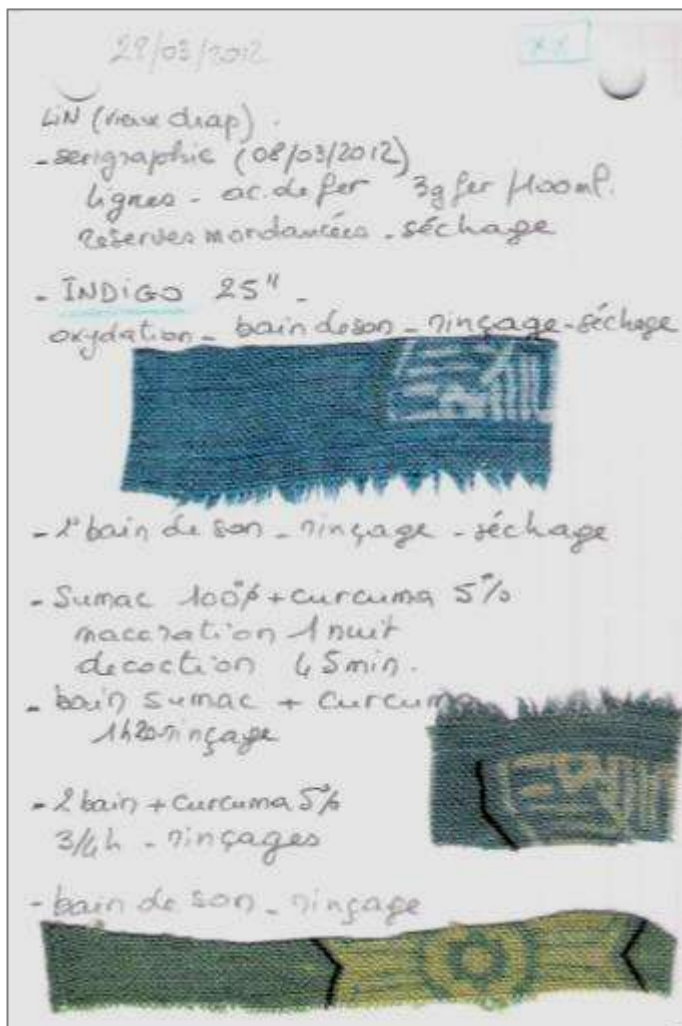 29/03/2012
LiN (vieux drap).
- serigraphie (08/03/2012)
lignes - ac. de fer 3g fer /100ml.
reserves mordancées - séchage
- INDiGO 25"-
oxydation - bain de son - rinçage - séchage
- 2° bain de son - rinçage - séchage
- Sumac 100% + curcuma 5%
maceration 1 nuit
decoction 45min.
- bain sumac + curcuma
1h20 rinçage
- 2 bain + curcuma 5%
3/4h - rinçages
- bain de son - rinçage